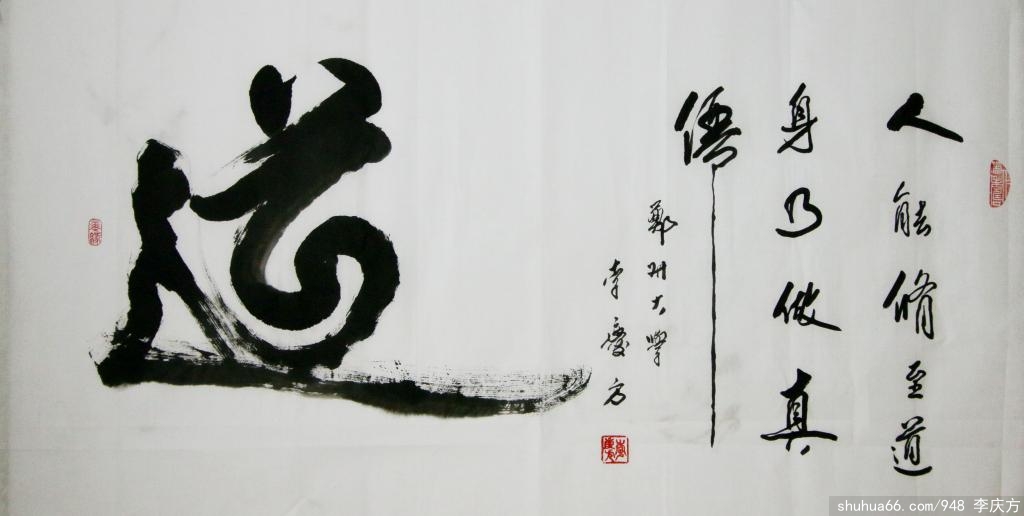 人能脩至道
身乃做真
儒
鄭州大學
李慶方
道
shuhua66.com/948 李庆方